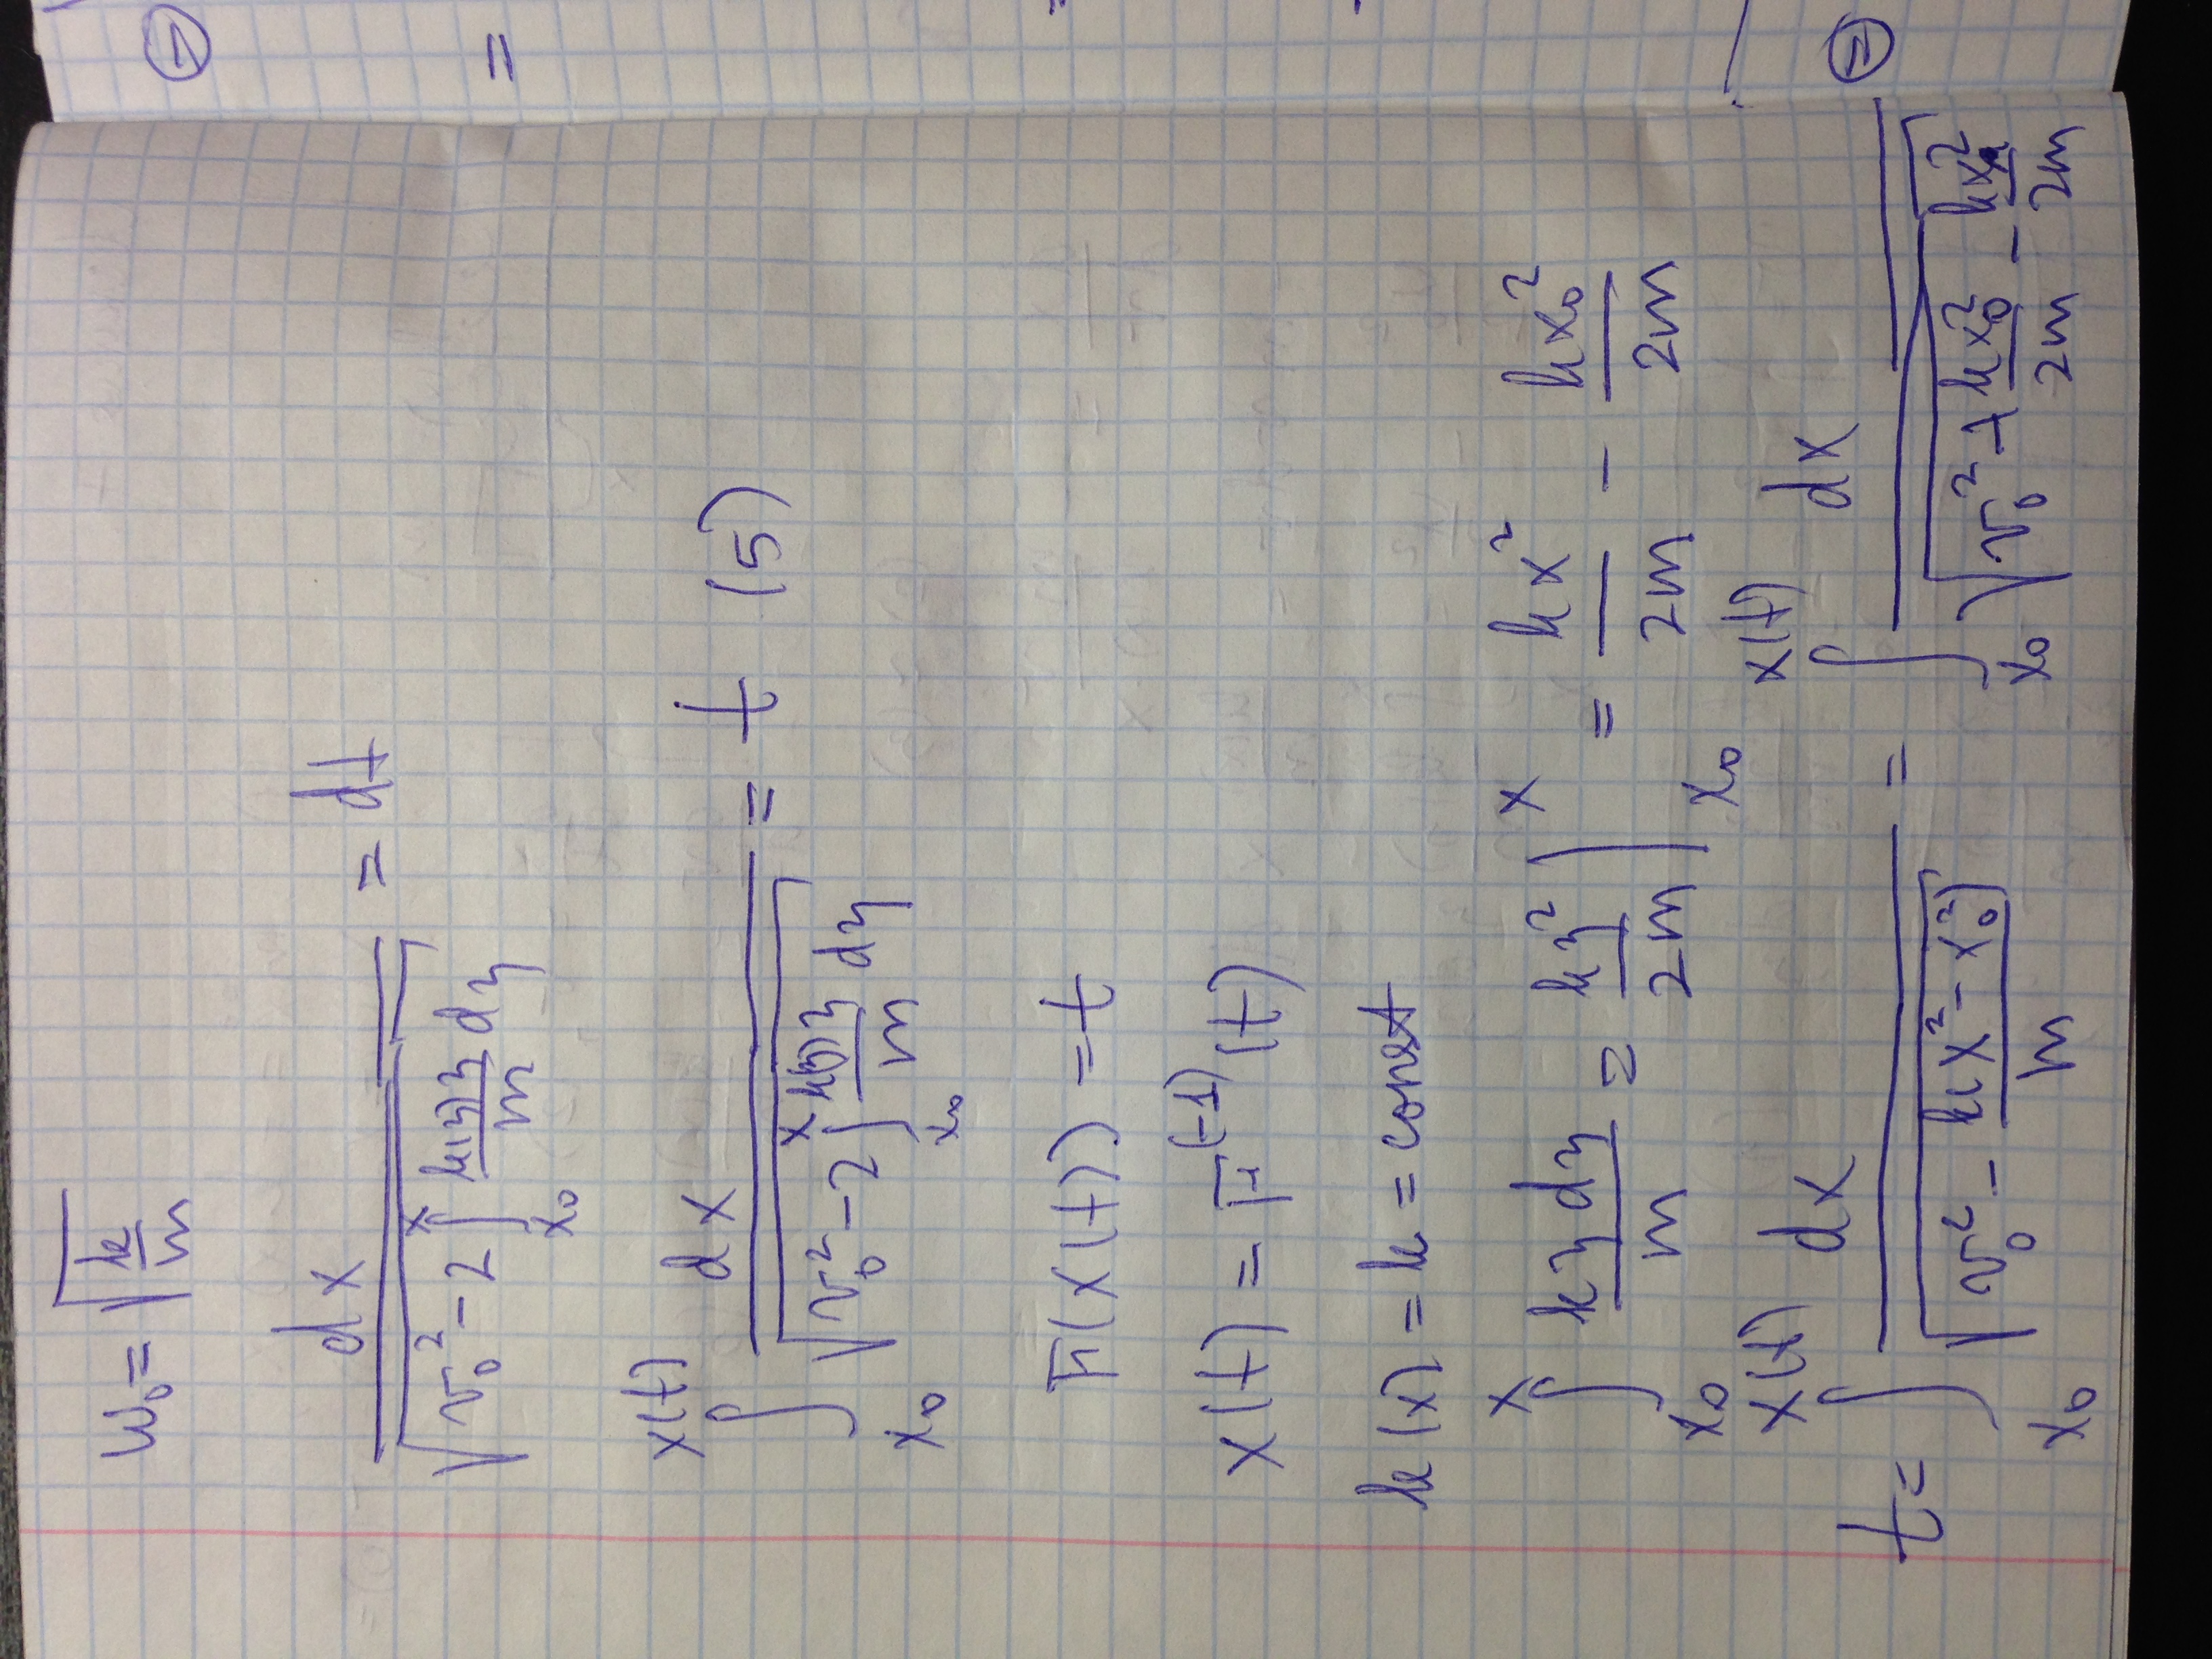 ω₀ = √(k/m)
dx / √(v₀² - 2 ∫_{x₀}^{x} k(η)η/m dη) = dt
∫_{x₀}^{x(t)} dx / √(v₀² - 2 ∫_{x₀}^{x} k(η)η/m dη) = t (5)
F(x(t)) = t
x(t) = F^{(-1)}(t)
k(x) = k = const
∫_{x₀}^{x} kη dη/m = kη²/2m |_{x₀}^{x} = kx²/2m - kx₀²/2m
t = ∫_{x₀}^{x(t)} dx / √(v₀² - k(x² - x₀²)/m) = ∫_{x₀}^{x(t)} dx / √(v₀² + kx₀²/2m - kx²/2m) ⊜
=